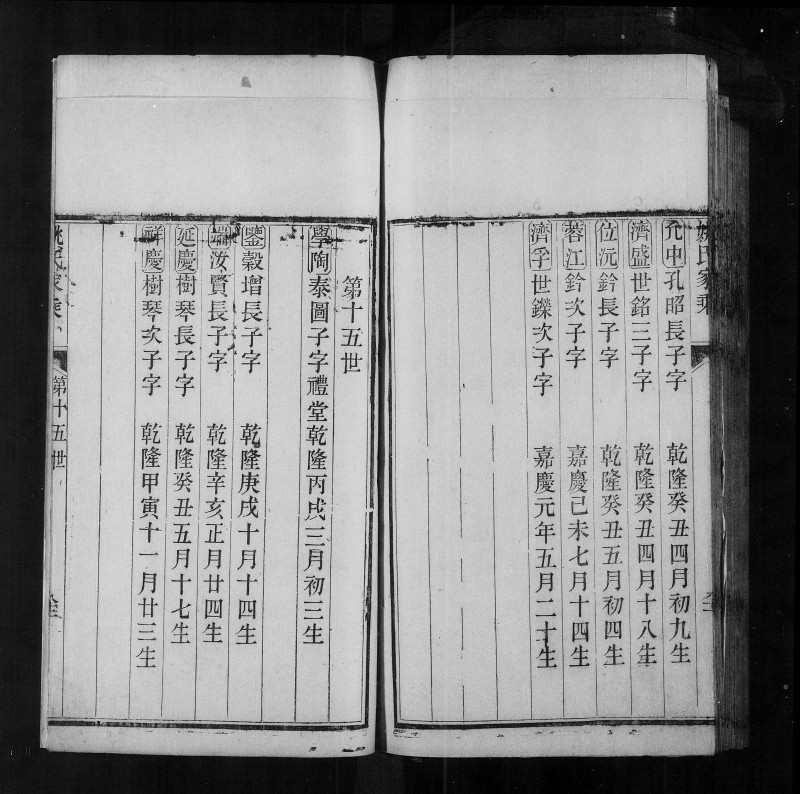 姚氏家乘
允中孔昭長子字 乾隆癸丑四月初九生
濟盛世銘三子字 乾隆癸丑四月十八生
位沅鈐長子字 乾隆癸丑五月初四生
蓉江鈐次子字 嘉慶己未七月十四生
濟孚世鑅次子字 嘉慶元年五月二十生
第十五世
學陶泰圖子字禮堂乾隆丙戌三月初三生
鑒穀增長子字 乾隆庚戌十月十四生
端汝賢長子字 乾隆辛亥正月廿四生
延慶樹琴長子字 乾隆癸丑五月十七生
祥慶樹琴次子字 乾隆甲寅十一月廿三生
姚氏家乘 第十五世